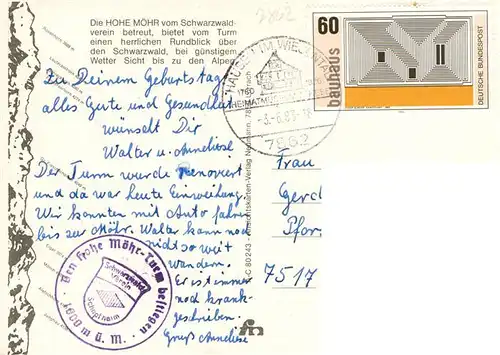 Die HOHE MÖHR vom Schwarzwald-
verein betreut, bietet vom Turm
einen herrlichen Rundblick über
den Schwarzwald, bei günstigem
Wetter Sicht bis zu den Alpen.
2802
60
bauhaus
DEUTSCHE BUNDESPOST
HAUSEN IM WIESENTAL
1760
-3.-6.83
7862
Zu Deinem Geburtstag
alles Gute und Gesundheit
wünscht Dir
Walter u. Anneliese!
Der Turm wurde renoviert
und da war heute Einweihung.
Wir konnten mit Auto fahren
bis zur Möhr. Walter kann noch
nicht so weit
wandern.
Er ist immer
noch krank-
geschrieben.
Gruß Anneliese
Den Hohe Möhr-Turm bestiegen
Schwarzwald
Verein
Schopfheim
C 80 243 - Ansichtskarten-Verlag Neumann, 78
Frau
Gerd
Pfor
7517